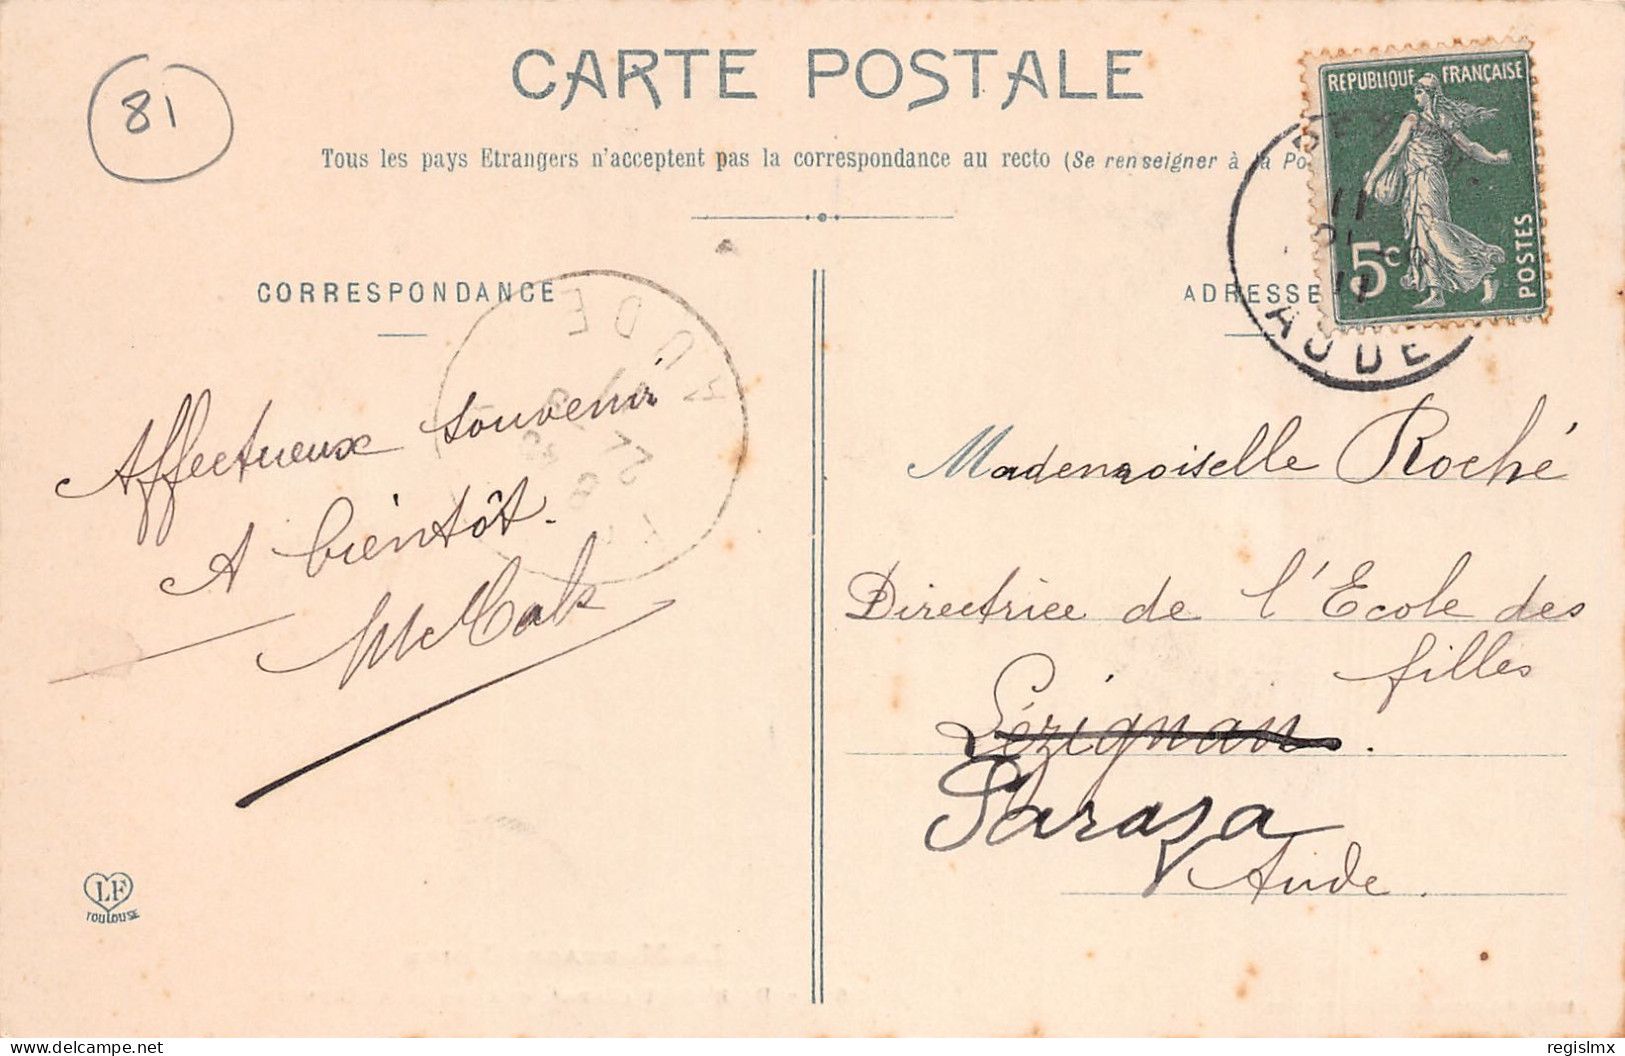 81
CARTE POSTALE
Tous les pays Etrangers n'acceptent pas la correspondance au recto (Se renseigner à la Po
REPUBLIQUE FRANÇAISE
5c
POSTES
11
11
AUDE
CORRESPONDANCE
ADRESSE
AUDE
27
Affectueux souvenir
A bientôt.
Mademoiselle Roché
Directrice de l'Ecole des
filles
Lézignan.
Paraza
Aude.
LF
TOULOUSE
delcampe.net
regislmx